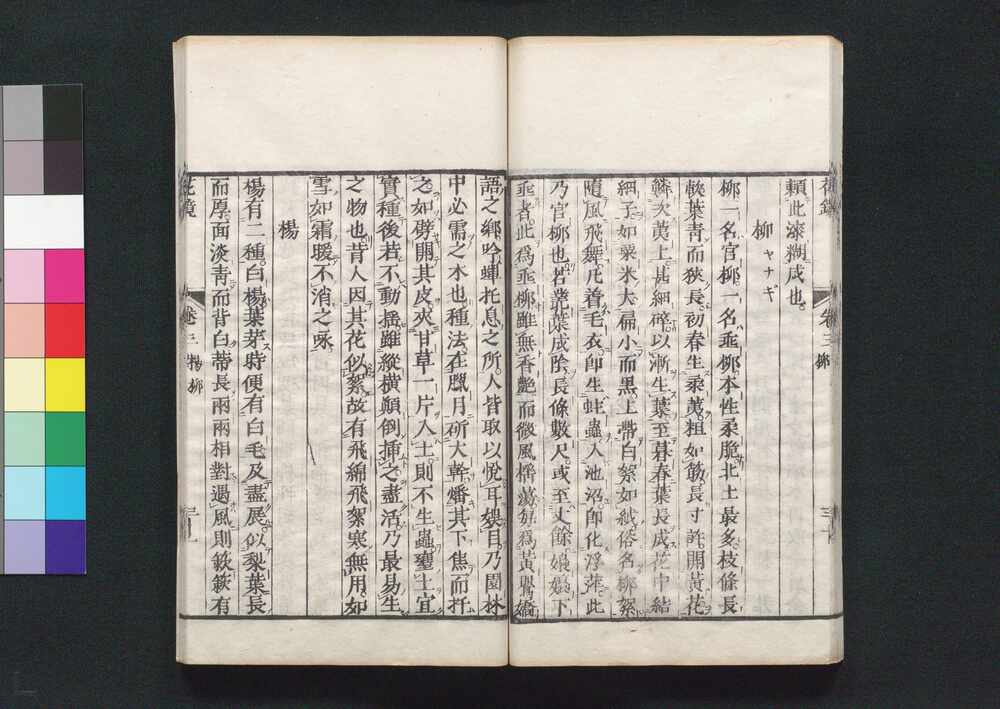 頼此漆糊成也。
柳 ヤナギ
柳一名官柳。一名垂柳本性柔脆北土最多枝條長
軟葉青而狹長。初春生柔荑。粗如筯長寸許開黃花
鱗次荑上甚細碎。以漸生葉至暮春葉長成花中結
細子如粟米大。扁小而黑。上帶白絮如絨。俗名柳絮
隨風飛舞。凡着毛衣即生蛀蟲入池沼。即化浮萍。此
乃官柳也。若叢葉成陰。長條數尺。或至丈餘。嫋嫋下
垂者。此爲垂柳。雖無香艶。而微風搖蕩。毎爲黃鸎嬌
語之鄉。吟蟬托息之所。人皆取以悅耳娯目。乃園林
中必需之木也。種法在臘月。斫大幹燔其下焦而扦
之。如劈開其皮夾甘草一片入土則不生蟲壅土宜
實種後若不動搖。雖縱横顛倒挿之盡活。乃最易生
之物也。昔人因其花似絮。故有飛綿飛絮寒無用。如
雪如霜暖不消之咏
楊
楊有二種。白楊葉芽時便有白毛及盡展似梨葉長
而厚。面淡青而背白。蒂長兩兩相對。遇風則簌簌有
花鏡
卷三 楊柳